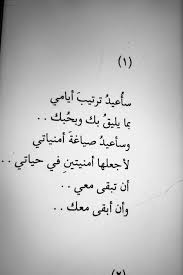 (١)
سأُعيدُ ترتيبَ أيامي
بما يليقُ بك وبحُبك . .
وسأعيد صياغة أمنياتي
لأجعلها أمنيتينِ في حياتي . .
أن تبقى معي . .
وأن أبقى معك . .
(٢)